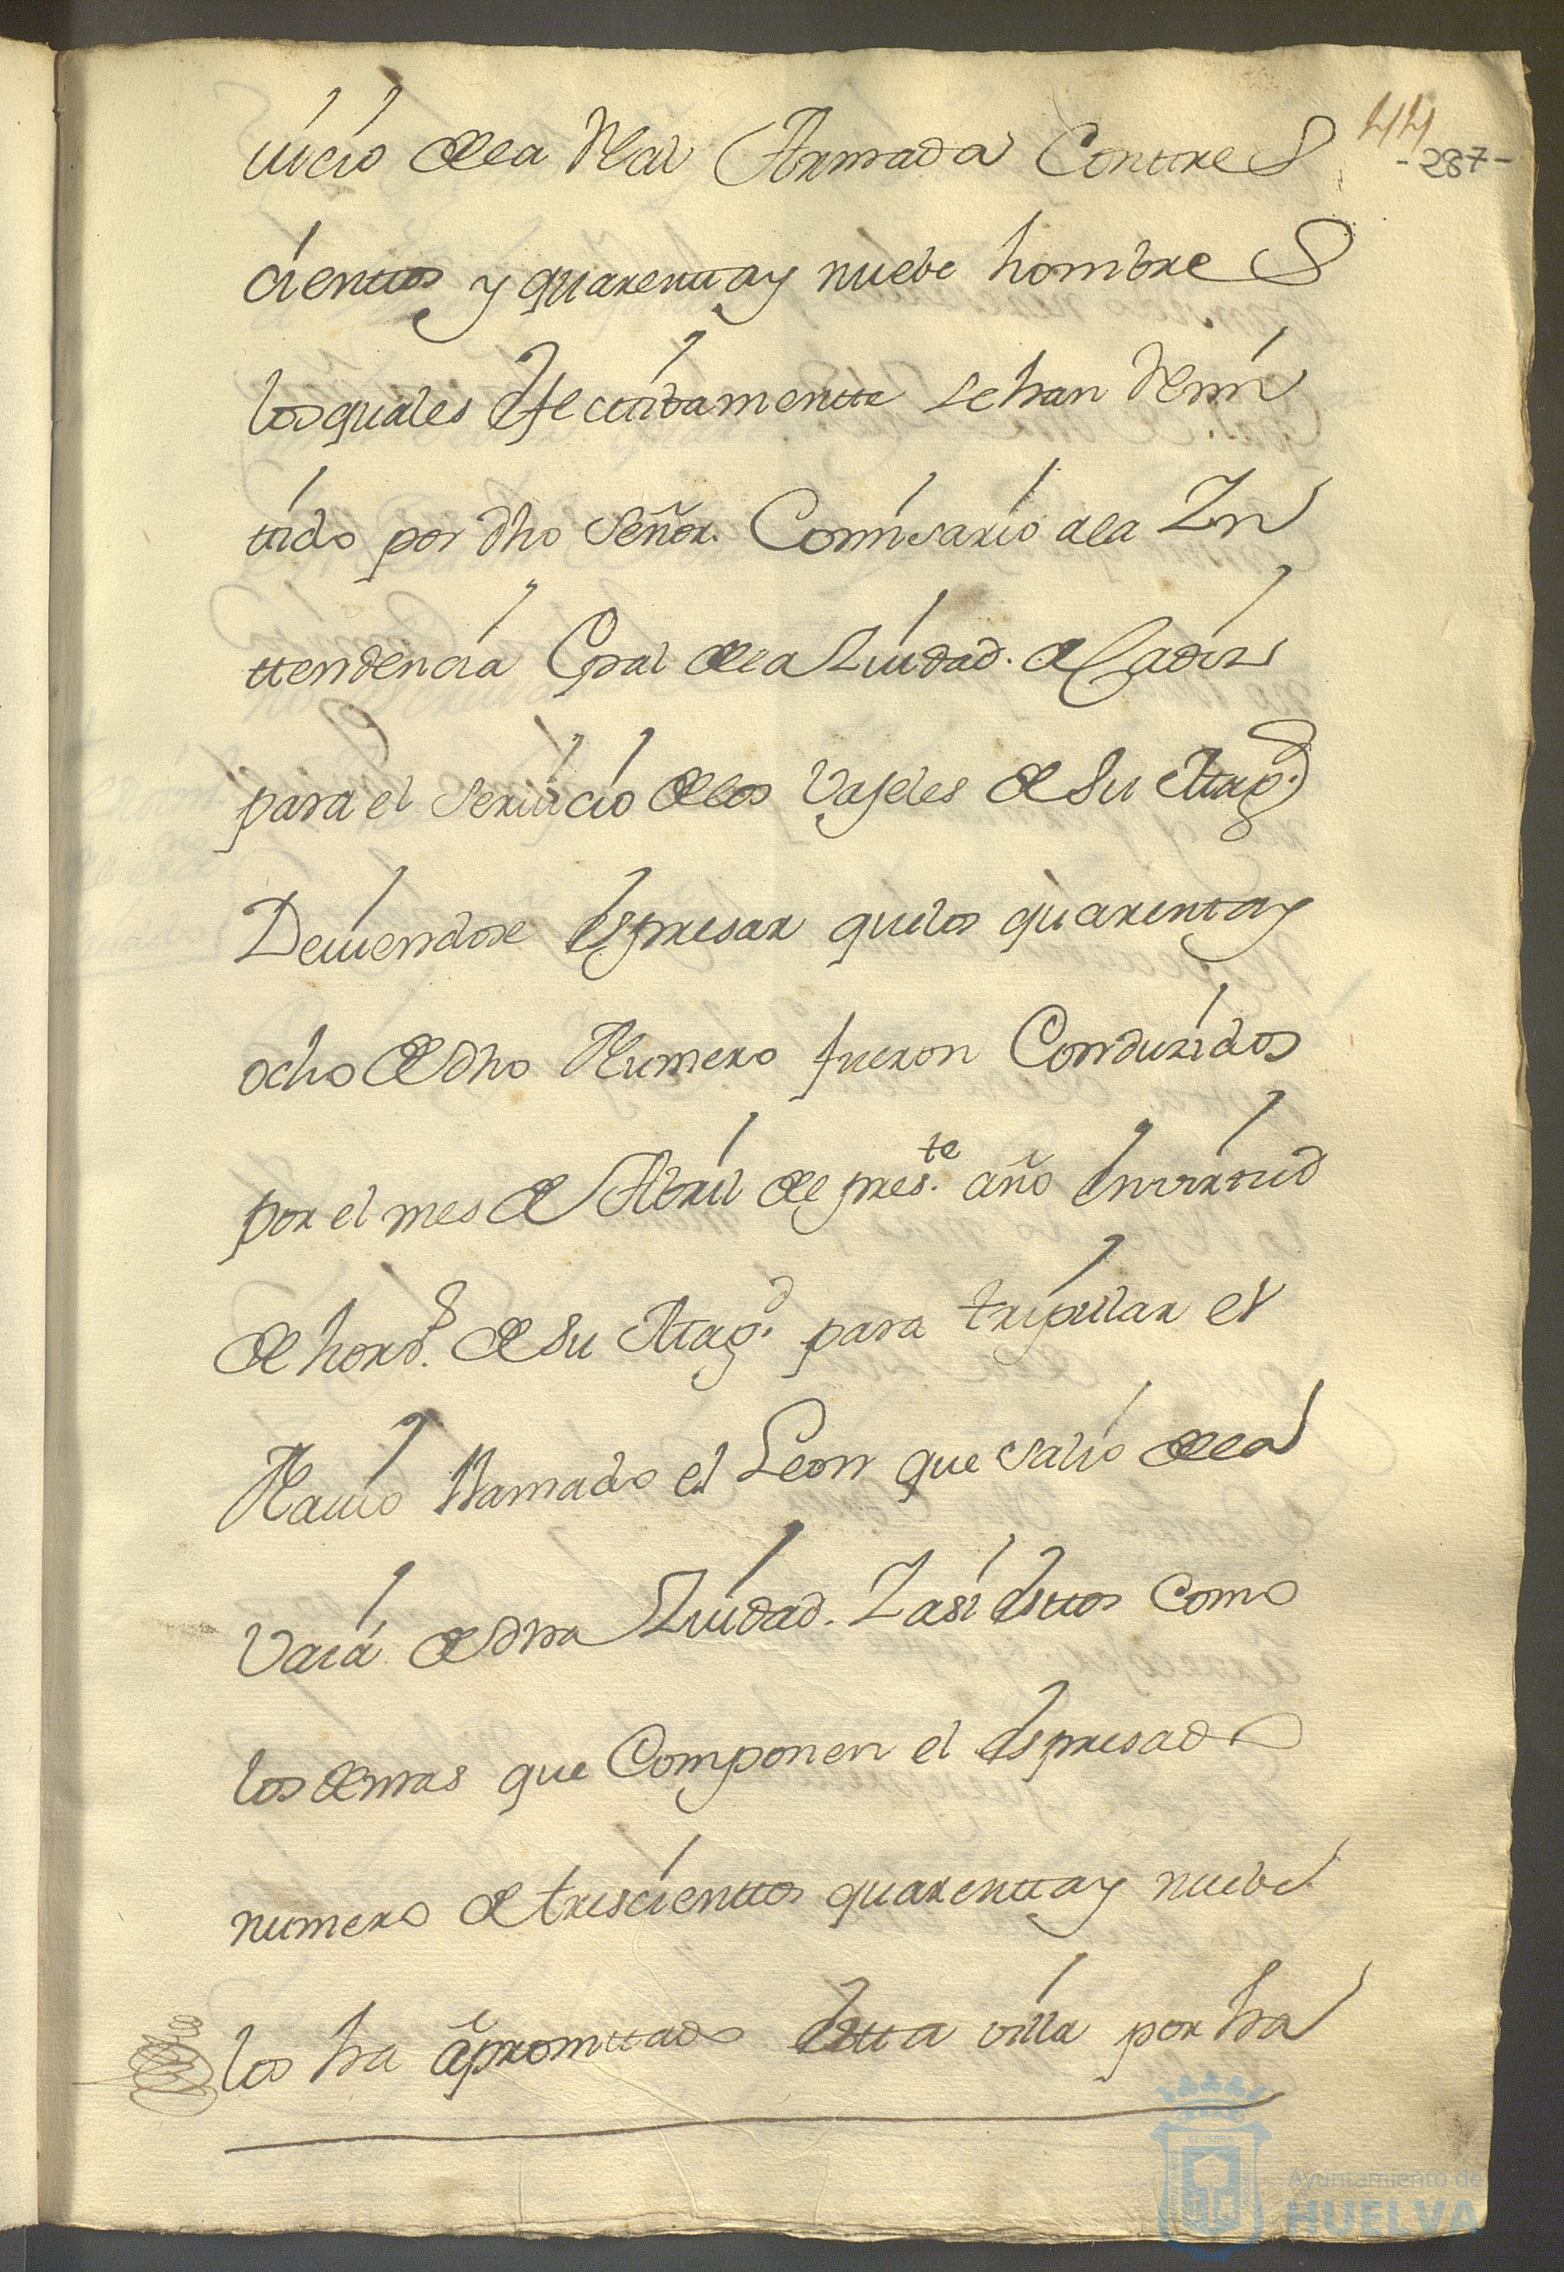 44
-287-
uicio de la Real Armada Contres
cientos y quarenta y nuebe hombres
los quales Efectibamentte se han Remi
tido por dho Señor. Comisario a la In
ttendencia Gral de la Ziudad. de Cadiz
para el seruicio de los Vajeles de Su Mag.d
Deuiendose Espresar que los quarenta y
ocho de dho Numero fueron Conduzidos
por el mes de Abril de pres.te año En virtud
de hord.s de Su Mag.d para tripular el
Nauio llamado el Leon que salio de la
Vaia de dha Ziudad. I asi Esttos como
los demas que Componen el Espresado
numero de trescienttos quarentta y nuebe
los ha apromttado Estta villa por ha
Ayuntamiento de
HUELVA